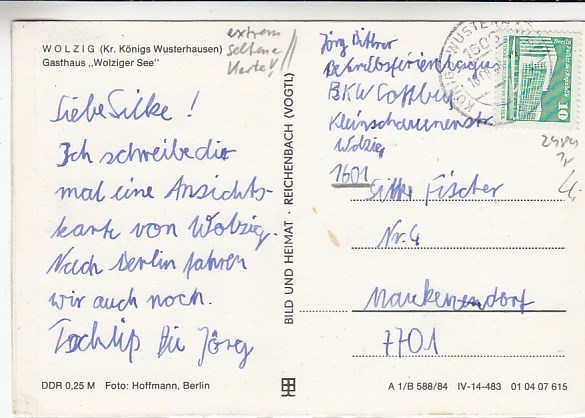 WOLZIG (Kr. Königs Wusterhausen)
Gasthaus „Wolziger See"
extrem
seltene
Karte!
Liebe Silke!
Ich schreibe dir
mal eine Ansichts-
karte von Wolzig.
Nach Berlin fahren
wir auch noch.
Tschüß Die Jörg
DDR 0,25 M Foto: Hoffmann, Berlin
BILD UND HEIMAT · REICHENBACH (VOGTL)
Jörg Bittner
Betriebsferienlager
BKW Cottbus
Kleinscharmenstr
Wolzig
1601
Silke Fischer
Nr. 4
Maukendorf
7701
10
2484
A 1/B 588/84 IV-14-483 01 04 07 615